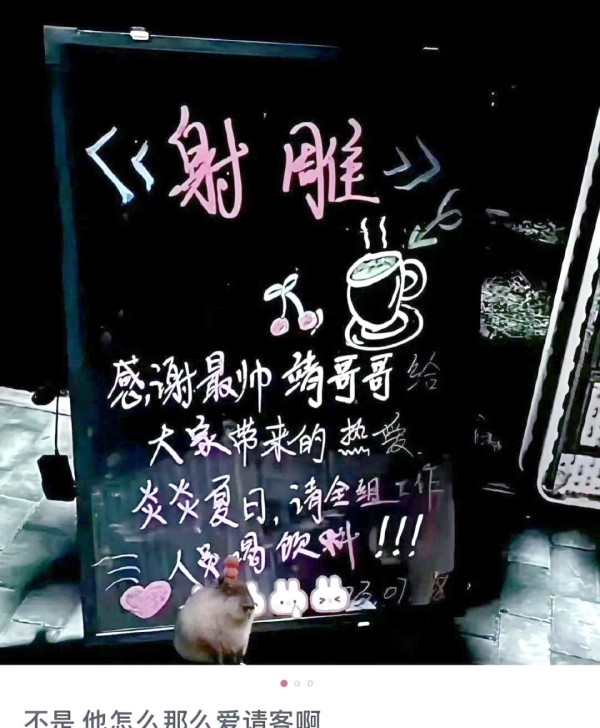 《射雕》
感谢最帅靖哥哥给
大家带来的热爱
炎炎夏日,请全组工作
人员喝饮料!!!
不是 他怎么那么爱请客啊